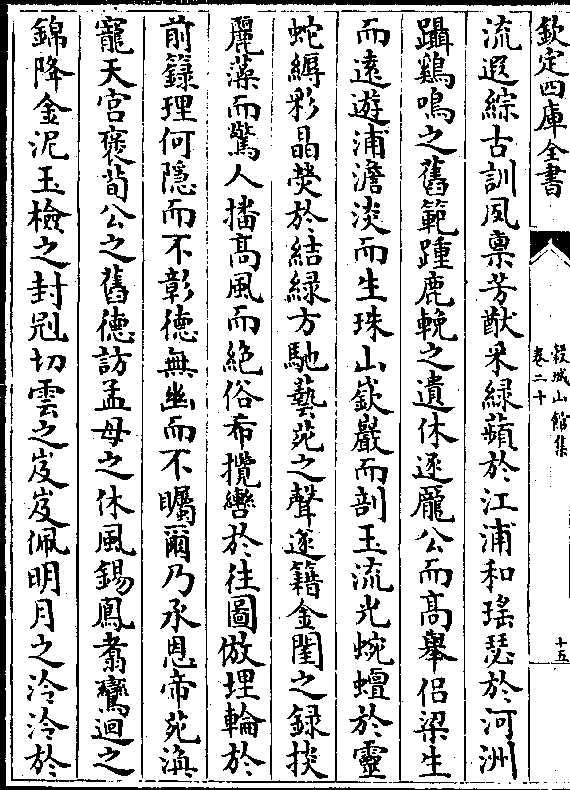 欽定四庫全書
穀城山館集
卷二十
十五
流遐綜古訓夙稟芳猷采綠蘋於江浦和瑤瑟於河洲
躡鷄鳴之舊範踵鹿輓之遺休逐龎公而髙舉侶梁生
而遠遊浦澹淡而生珠山嶔巖而剖玉流光蜿蟺於靈
蛇縟彩晶熒於結緑方馳藝苑之聲遂籍金閨之録掞
麗藻而驚人播高風而絶俗布攬轡於往圖倣埋輪於
前籙理何隠而不彰德無幽而不矚爾乃承恩帝苑渙
寵天宮褒荀公之舊德訪孟母之休風錫鳳翥鸞迴之
錦降金泥玉檢之封冠切雲之岌岌佩明月之泠泠於